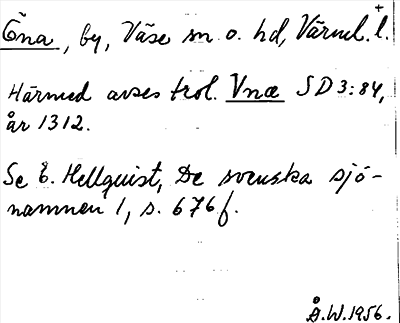 Õna, by, Väse sn o. hd, Värml. l.
Härmed avses trol. Vnæ SD 3:84,
år 1312.
Se E. Hellquist, De svenska sjö-
namnen 1, s. 676 f.
Å.W. 1956.